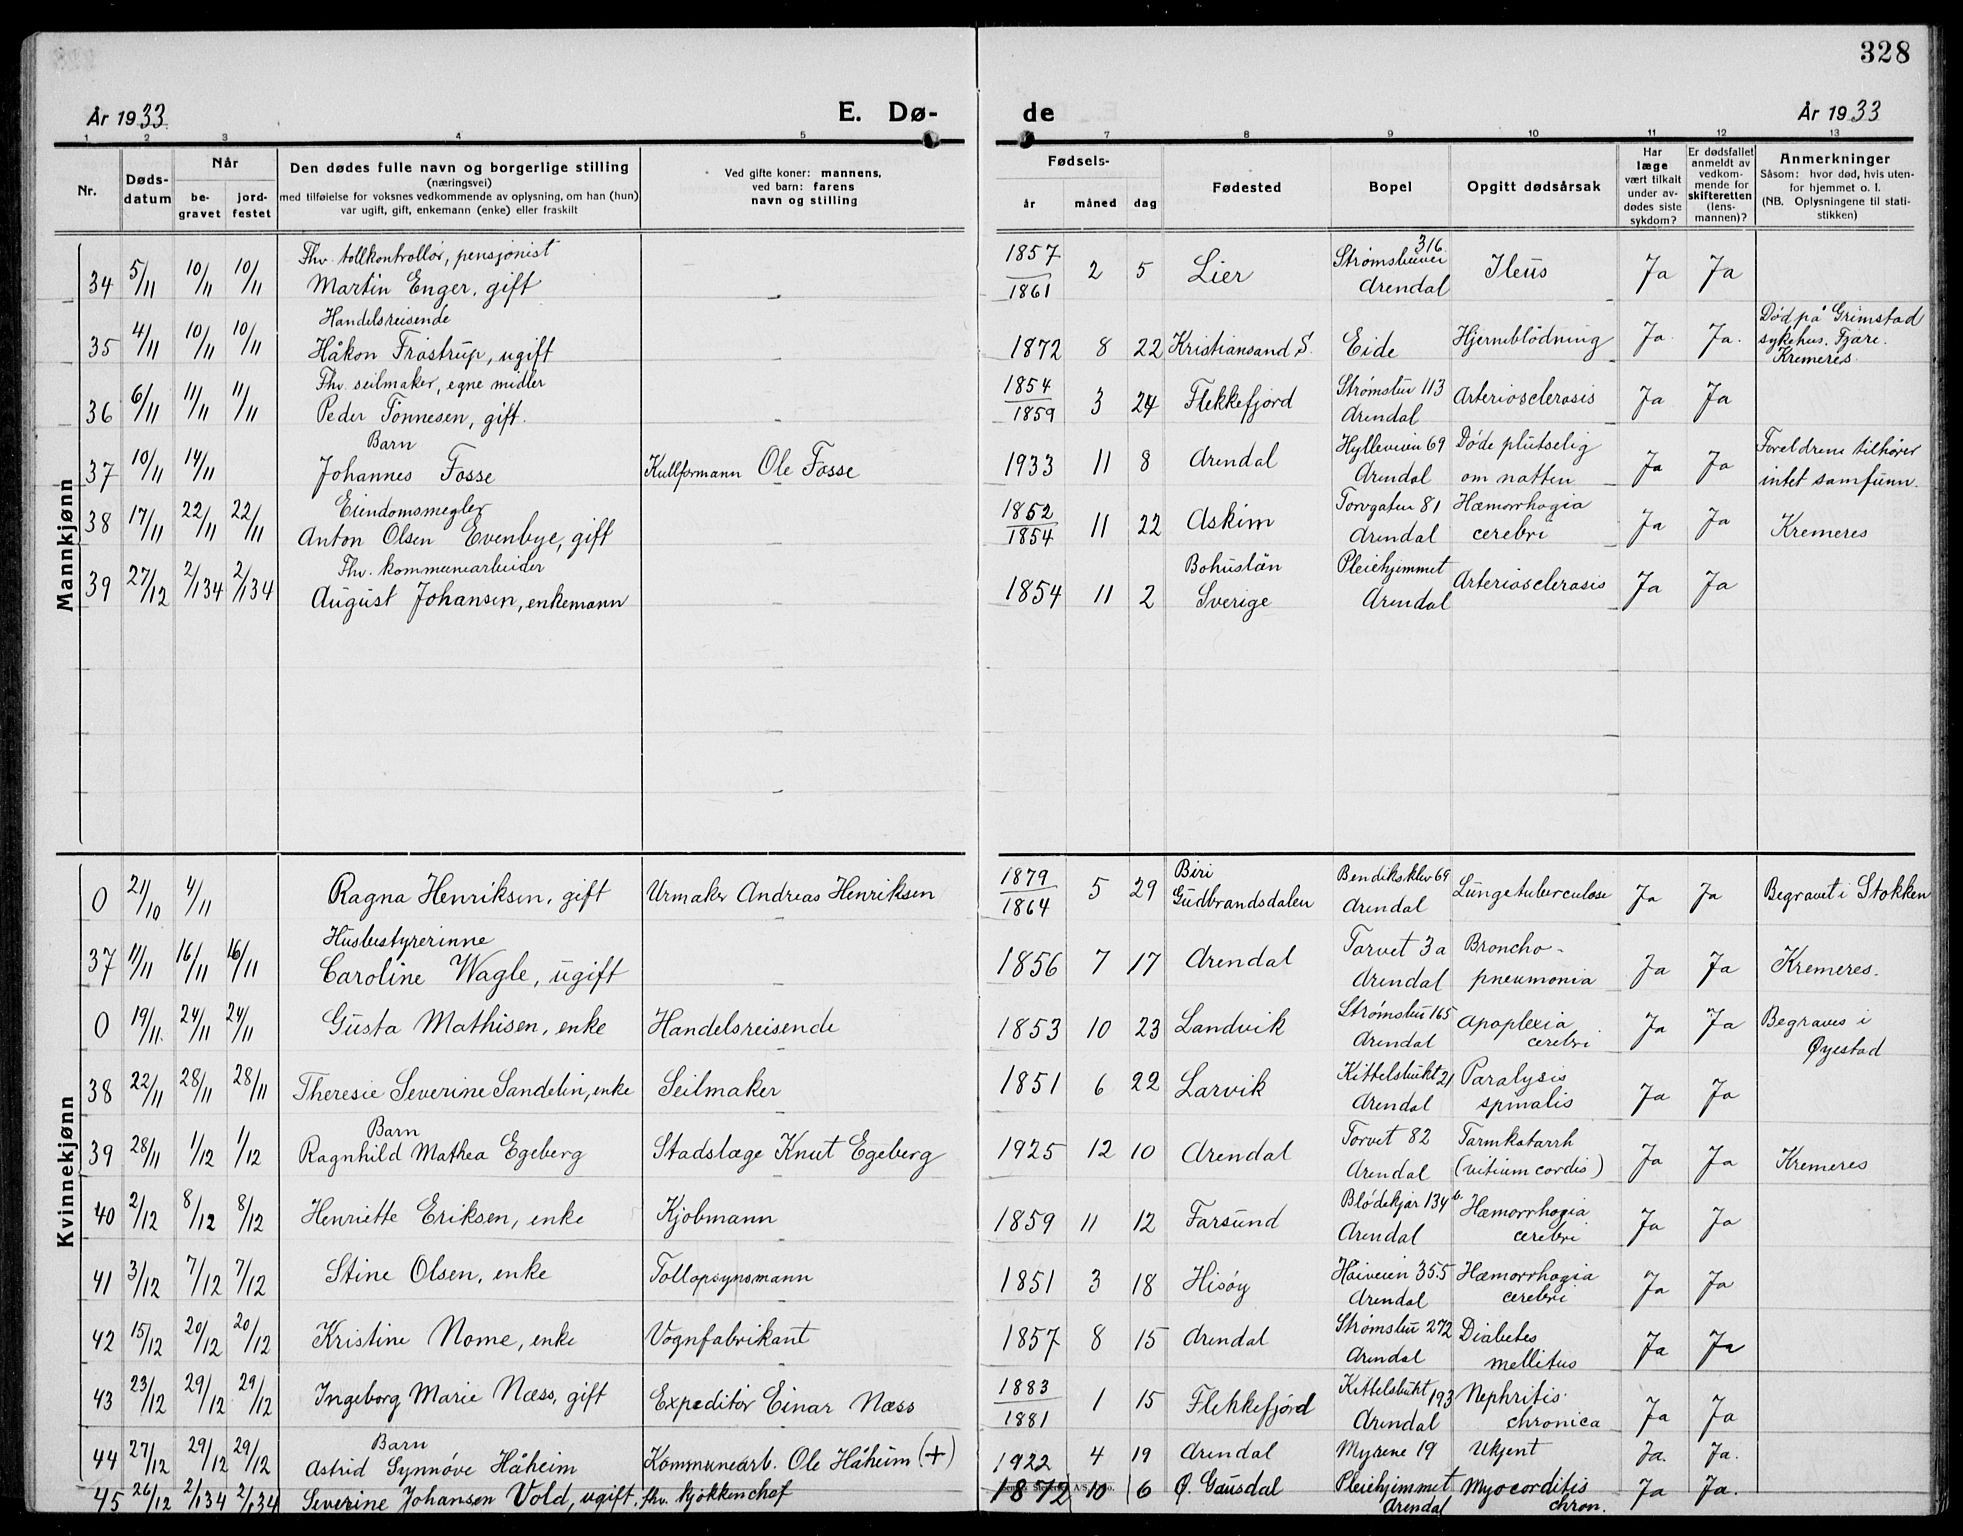 328
År 1933 E. Dø- de År 1933
1 2 3 4 5 7 8 9 10 11 12 13
Nr. Døds-datum Når be-gravet jord-festet Den dødes fulle navn og borgerlige stilling (næringsvei) med tilføielse for voksnes vedkommende av oplysning, om han (hun) var ugift, gift, enkemann (enke) eller fraskilt Ved gifte koner: mannens, ved barn: farens navn og stilling Fødsels- år måned dag Fødested Bopel Opgitt dødsårsak Har læge vært tilkalt under av-dødes siste sykdom? Er dødsfallet anmeldt av vedkom-mende for skifteretten (lens-mannen)? Anmerkninger Såsom: hvor død, hvis uten-for hjemmet o. l. (NB. Oplysningene til stati-stikken)
Mannkjønn
34 5/11 10/11 10/11 Fhv. tollkontrollör, pensjonist Martin Enger, gift - 1857/1861 2 5 Lier Strømsbuvei 316. Arendal Ileus Ja Ja
35 4/11 10/11 10/11 Handelsreisende Håkon Fröstrup, ugift - 1872 8 22 Kristiansand S. Eide Hjerneblödning Ja. Ja. Död på Grimstad sykehus. Fjære. Kremeres
36 6/11 11/11 11/11 Fhv. seilmaker, egne midler Peder Tönnesen, gift. - 1854/1859 3 24 Flekkefjord Strømsbu 113 Arendal Arteriosclerosis Ja Ja
37 10/11 14/11 Barn Johannes Fosse Kullformann Ole Fosse 1933 11 8 Arendal Hylleveien 69 Arendal Döde plutselig om natten Ja Ja Foreldrene tilhører intet samfunn.
38 17/11 22/11 22/11 Eiendomsmegler Anton Olsen Evenbye, gift - 1852/1854 11 22 Askim Torvgaten 81 Arendal Hæmorrhagia cerebri Ja Ja Kremeres
39 27/12 2/1 34 2/1 34 Fhv. kommunearbeider August Johansen, enkemann - 1854 11 2 Bohuslän Sverige Pleiehjemmet Arendal Arteriosclerosis Ja Ja
Kvinnekjønn
0 21/10 4/11 Ragna Henriksen, gift Urmaker Andreas Henriksen 1879/1864 5 29 Biri Gudbrandsdalen Bendiksklev 69 Arendal Lungetuberculose Ja Ja Begravet i Stokken
37 11/11 16/11 16/11 Husbestyrerinne Caroline Wagle, ugift - 1856 7 17 Arendal Torvet 3a Arendal Broncho-pneumonia Ja Ja Kremeres.
0 19/11. 24/11 24/11 Gusta Mathisen, enke Handelsreisende 1853 10 23 Landvik Strømsbu 165 Arendal Apoplexia cerebri Ja Ja Begraves i Øyestad
38 22/11 28/11 28/11 Theresie Severine Sandelin, enke Seilmaker 1851 6 22 Larvik Kittelsbukt 21 Arendal Paralysis spinalis Ja Ja
39 28/11 1/12 1/12 Barn Ragnhild Mathea Egeberg Stadslæge Knut Egeberg 1925 12 10 Arendal Torvet 82 Arendal Tarmkatarrh (vitium cordis) Ja Ja Kremeres
40 2/12 8/12 8/12 Henriette Eriksen, enke Kjöbmann 1859 11 12 Farsund Blödekjær 134b. Arendal Hæmorrhagia cerebri Ja Ja
41 3/12 7/12 7/12 Stine Olsen, enke Tollopsynsmann 1851 3 18 Hisöy Höiveien 355 Arendal Hæmorrhagia cerebri Ja Ja
42 15/12 20/12 20/12 Kristine Nome, enke Vognfabrikant 1857 8 15 Arendal Strømsbu 272 Arendal Diabetes mellitus Ja Ja
43 23/12 29/12 29/12 Ingeborg Marie Næss, gift Expeditör Einar Næss 1883/1881 1 15 Flekkefjord Kittelsbukt 193 Arendal Nephritis chronica Ja Ja
44 27/12 29/12 29/12 Barn Astrid Synnöve Håheim Kommunearb. Ole Håheim (+) 1922 4 19 Arendal Myrene 19 Ukjent Ja. Ja.
45 26/12 2/1 34 2/1 34 Severine Johansen Vold, ugift. fhv. kjökkenchef 1872 10 6 Ø. Gausdal Pleiehjemmet Arendal Myocorditis chron. Ja Ja.